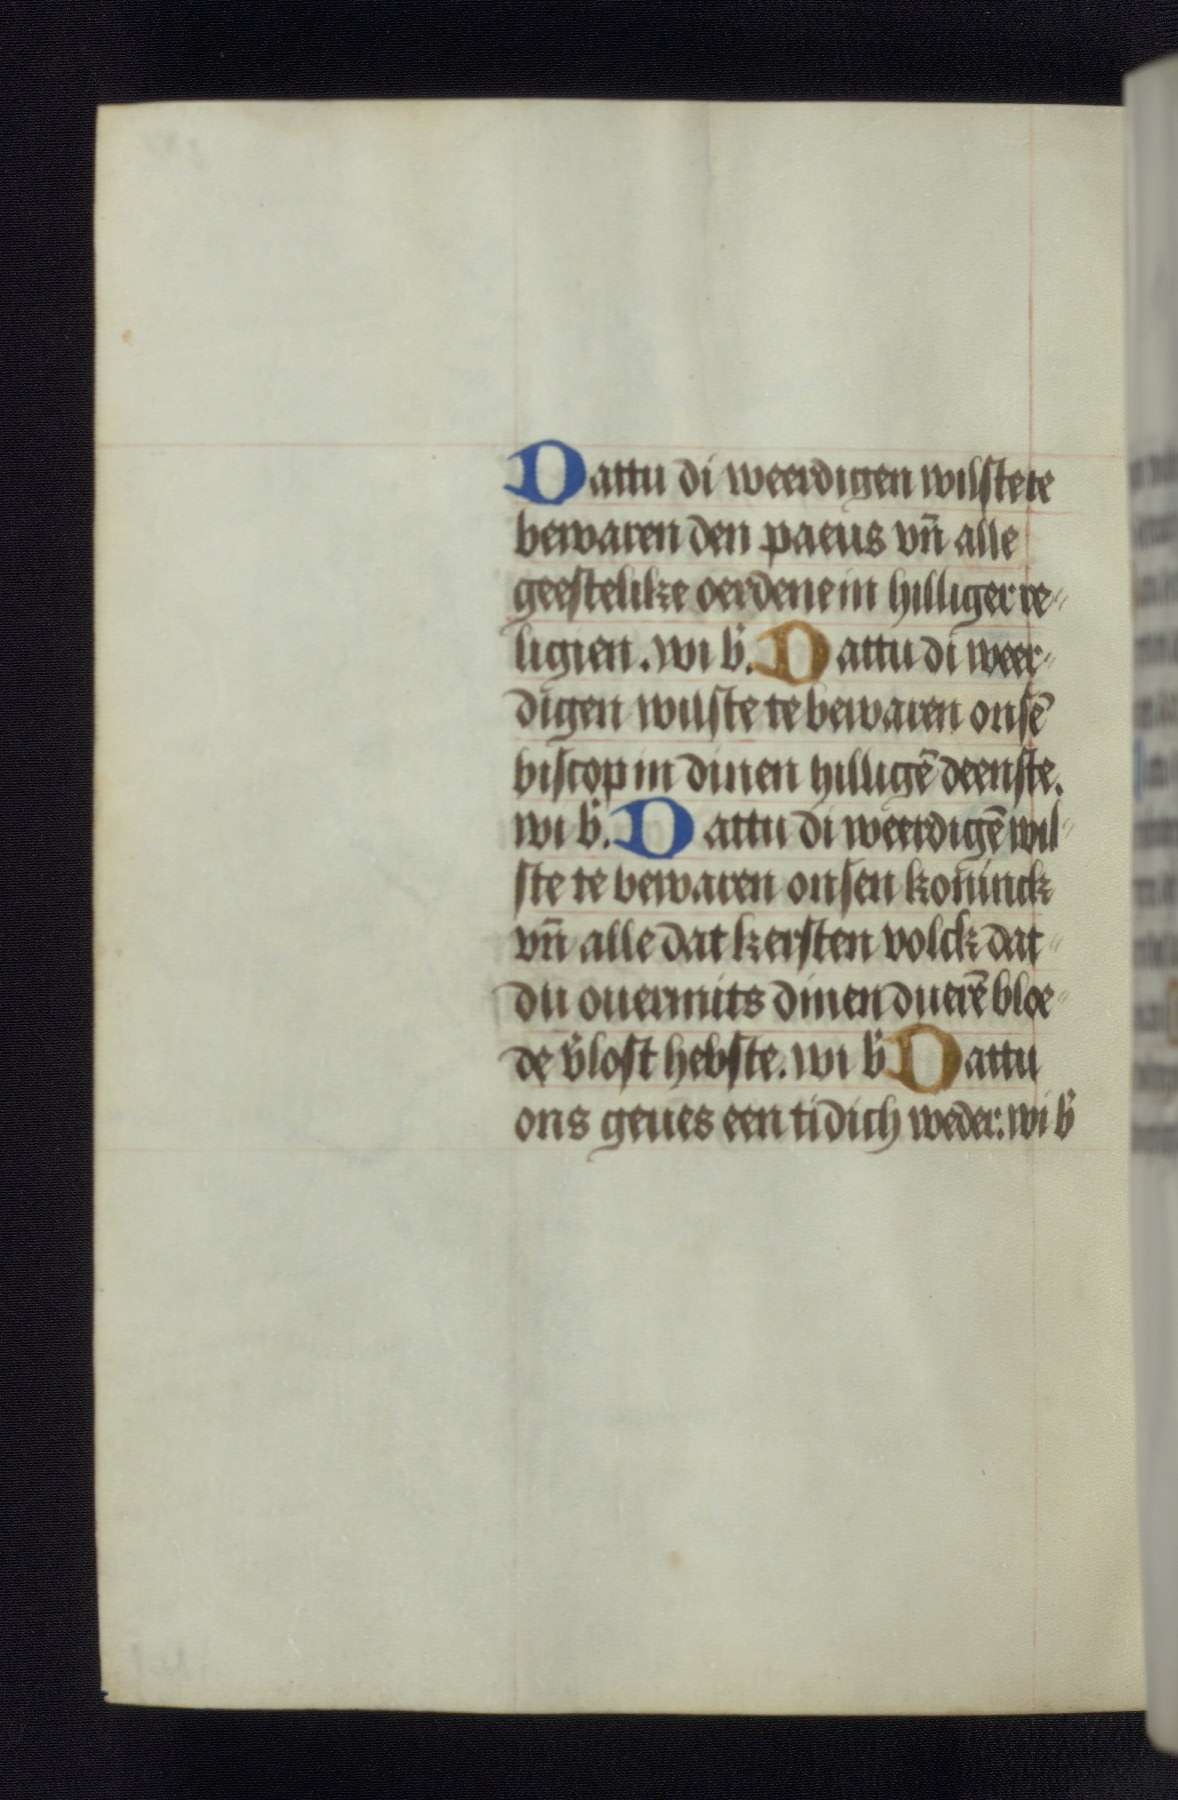 Dattu di weerdigen wilste te
bewaren den paeus vn̄ alle
geestelike oerdene in hilliger re⸗
ligien. wi b̄. Dattu di weer⸗
digen wilste te bewaren onsē
biscop in dinen hilligē deenste.
wi b̄. Dattu di weerdigē wil⸗
ste te bewaren onsen koninck
vn̄ alle dat kersten volck dat⸗
du ouermits dinen duerē bloe⸗
de v̄lost hebste. wi b̄ Dattu
ons geues een tidich weder. wi b̄